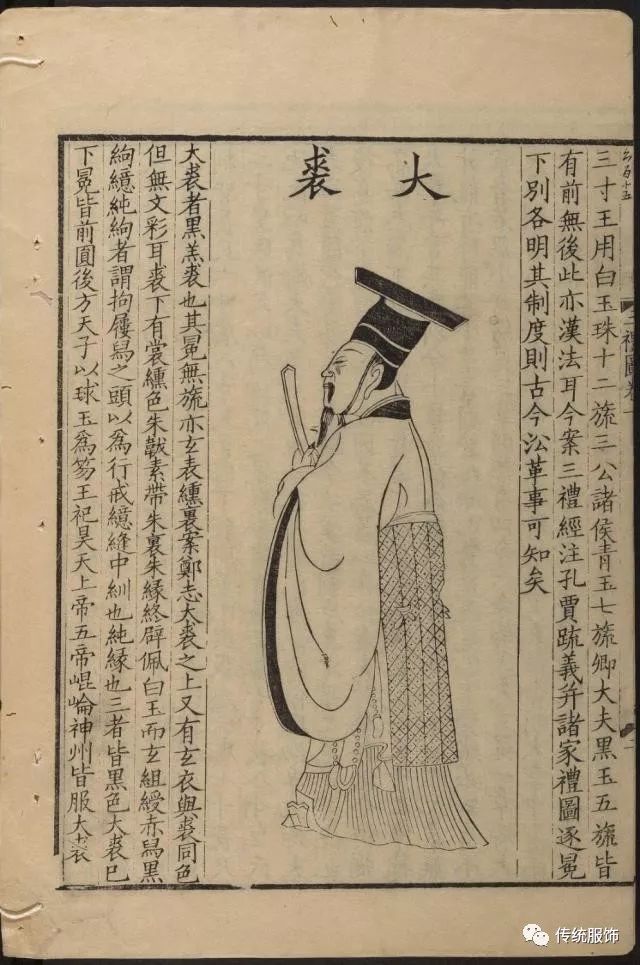 三寸王用白玉珠十二旒三公諸侯青玉七旒卿大夫黑玉五旒皆
有前無後此亦漢法耳今案三禮經注孔賈疏義并諸家禮圖逐冕
下別各明其制度則古今沿革事可知矣
大裘
大裘者黑羔裘也其冕無旒亦玄表纁裏案鄭志大裘之上又有玄衣與裘同色
但無文彩耳裘下有裳纁色朱韍素帶朱裏朱緣終辟佩白玉而玄組綬赤舄黑
絇繶純絇者謂拘屨舄之頭以為行戒繶縫中紃也純緣也三者皆黑色大裘已
下冕皆前圓後方天子以球玉為笏王祀昊天上帝五帝崐崘神州皆服大裘
三禮圖卷一
传统服饰